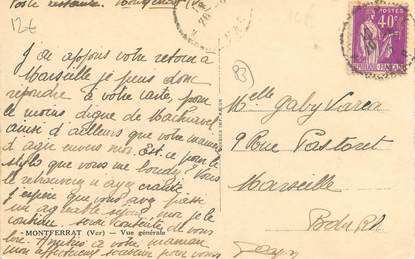 12€
Poste restante. Montferrat (Var)
J'ai appris votre retour à
Marseille je peux donc
répondre à votre carte, pour
le moins digne de Machiavel
ainsi d'ailleurs que votre manière
d'agir envers moi. Est-ce pour le
stylo que vous me boudez? Vous
le retrouverez n'ayez crainte
J'espère que vous avez passé
un agréable séjour, moi je le
continue. serai de vous
lire. Amitiés à votre maman
mon affectueux pour vous
MONTFERRAT (Var) — Vue générale
83
POSTES
40c
REPUBLIQUE FRANÇAISE
Melle Gaby
9 Rue Pastoret
Marseille
Bdu Rh.